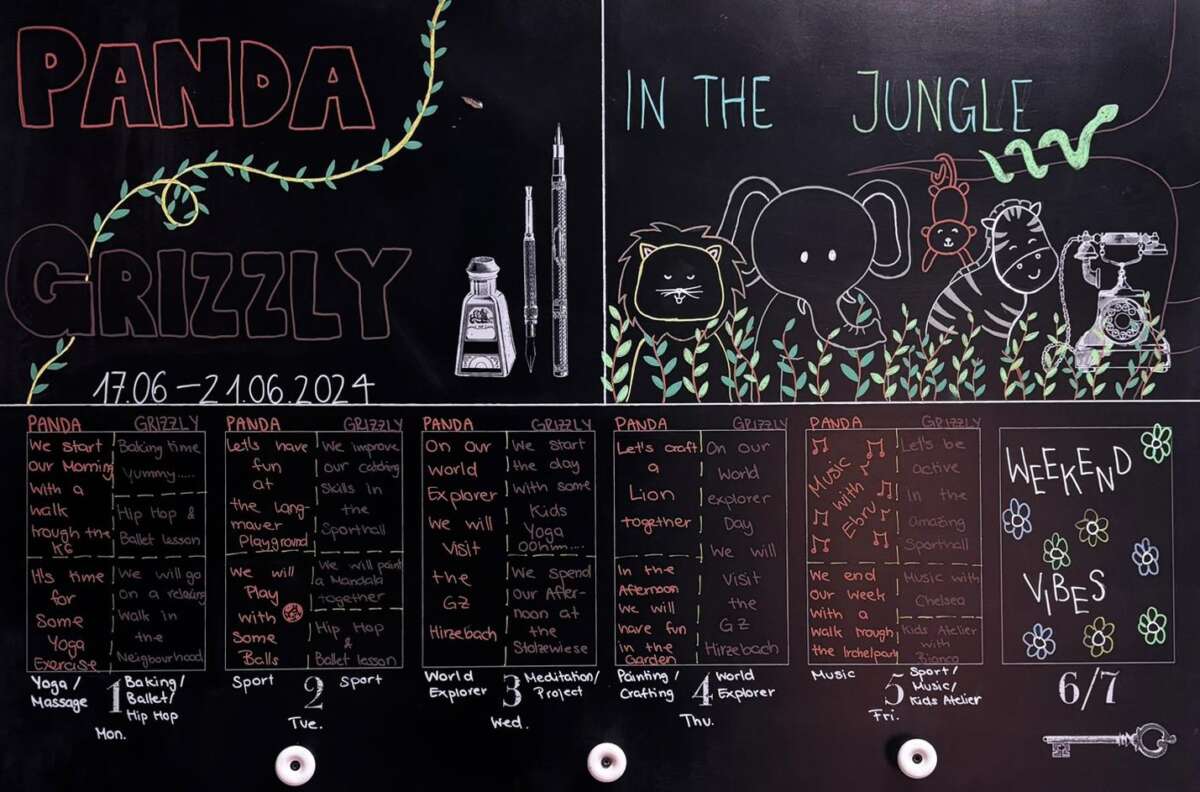 PANDA
GRIZZLY
17.06 – 21.06.2024
IN THE JUNGLE
PANDA
We start
our Morning
with a
walk
trough the
K6
It's time
for
Some
Yoga
Exercise
GRIZZLY
Baking time
Yummy.....
Hip Hop &
Ballet lesson
We will go
on a relaxing
walk in
the
Neigbourhood
Yoga /
Massage
1
Baking/
Ballet/
Hip Hop
Mon.
PANDA
Let's have
fun
at
the Lang-
mauer
Playground
We will
Play
with
Some
Balls
GRIZZLY
We improve
our catching
Skills in
the
Sporthall
We will paint
a Mandala
together
Hip Hop
&
Ballet lesson
Sport
2
Sport
Tue.
PANDA
On our
world
Explorer
We will
visit
the
GZ
Hirzebach
GRIZZLY
We start
the day
with some
Kids
Yoga
Oohm....
We spend
our After-
noon at
the
Stolzewiese
World
Explorer
3
Meditation/
Project
Wed.
PANDA
Let's craft
a
Lion
together
In the
Afternoon
We will
have fun
in the
Garden
GRIZZLY
On our
World
explorer
Day
We will
Visit
the
GZ
Hirzbach
Painting /
Crafting
4
World
Explorer
Thu.
PANDA
Music
with
Ebru
We end
our week
with a
walk trough
the Irchelpark
GRIZZLY
Let's be
active
in the
amazing
Sporthall
Music with
Chelsea
Kids Atelier
with
Bianca
Music
5
Sport/
Music/
Kids Atelier
Fri.
WEEKEND
VIBES
6/7